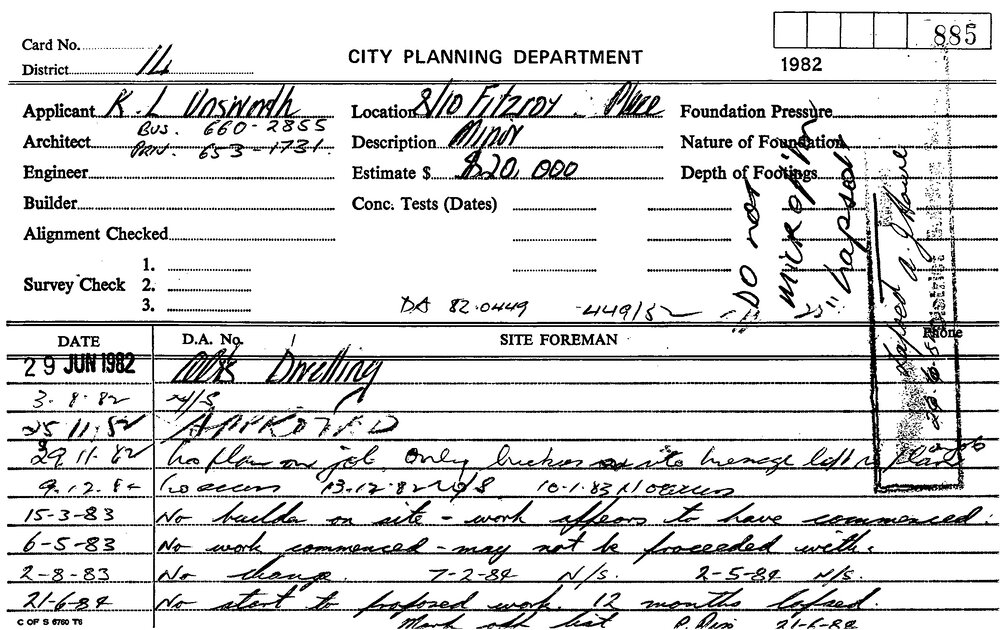 885
Card No.
1982
District 14
CITY PLANNING DEPARTMENT
Applicant K. L Unsworth
Location 8/10 Fitzroy Place
Foundation Pressure
Architect BUS. 660-2855
PRIV. 653-1731
Description Minor
Nature of Foundation
Engineer
Estimate $ $20,000
Depth of Footings
Builder
Conc. Tests (Dates)
Alignment Checked
Survey Check 1.
2.
3.
DA 82.0449 -449/82
"DO NOT
microfilm
"Lapsed"
Lapsed
DATE D.A. No. SITE FOREMAN Phone
29 JUN 1982 Dwelling
3.8.82 N/S
25 11.82 APPROVED
29.11.82 No plan on job. Only bricks on site message left re plans
9.12.82 No access 13.12.82 N/S 10.1.83 No access
15-3-83 No builder on site - work appears to have commenced.
6-5-83 No work commenced - may not be proceeded with.
2-8-83 No change. 7-2-84 N/S. 2-5-84 N/S.
21-6-84 No start to proposed work. 12 months lapsed.
C OF S 6760 T6
Mark off list 21-6-84